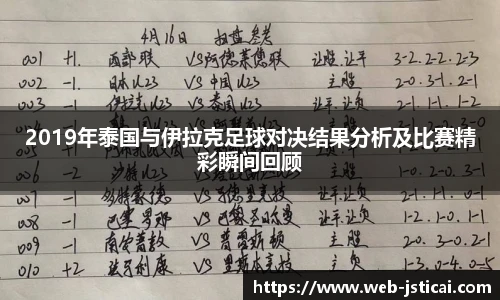 4月16日 扫盘参考
001 +1. 西部联 VS阿德莱德联 让胜.让平 3-2. 2-2. 2-3
002 -1. 日本U23 VS中国U23 主胜 2-0. 3-1. 2-1
003 -1 伊拉克U23 VS泰国U23 让平.让负 2-1. 1-1. 1-2
2019年泰国与伊拉克足球对决结果分析及比赛精
彩瞬间回顾
006 -2 沙特U23 VS 1-0. 2-0. 3-1
007 -1 VS 让平.让负 2-1. 1-1. 0-1
008 -1 巴塞罗那 VS 让平.让负 1-2. 1-0. 1-1
009 -1 VS普雷斯顿 主胜 2-0. 3-0. 2-1
010 +2 VS里斯本竞技 让负 1-3. 0-4. 0-5
https://www.web-jsticai.com